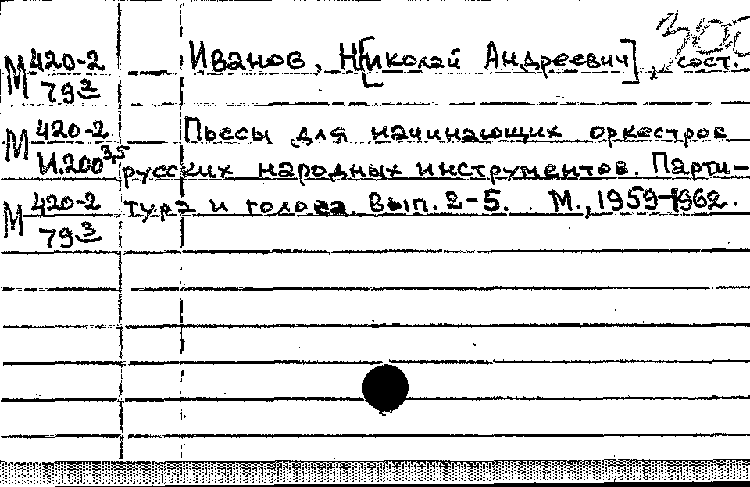 Иванов, Н[иколай Андреевич], сост.
М 420-2
79²
Пьесы для начинающих оркестров
М 420-2
И.200³,⁵
русских народных инструментов. Парти-
тура и голоса. Вып. 2-5. М., 1959-1962.
М 420-2
79³